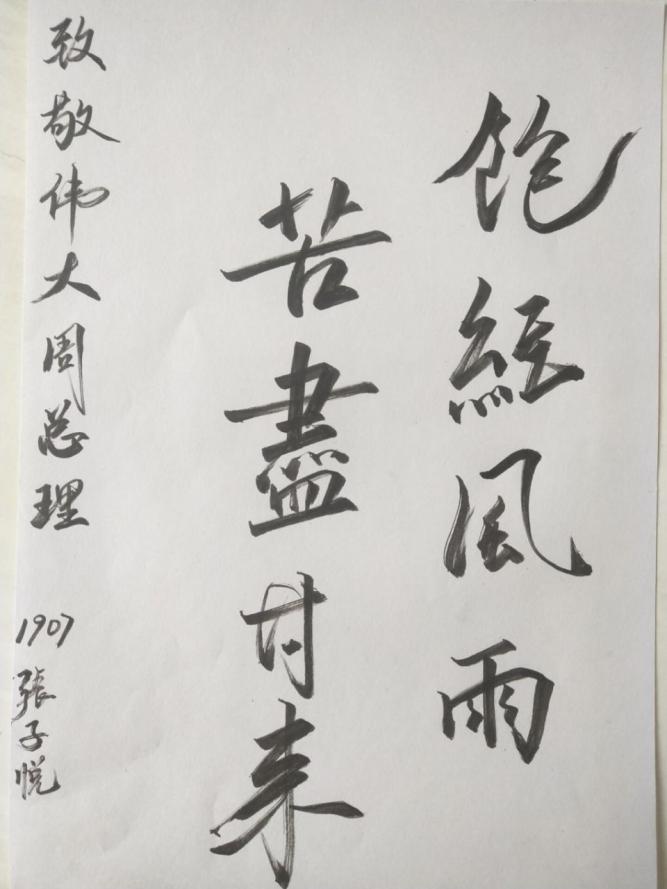 飽經風雨
苦盡甘来
致敬伟大周总理
1907 張子悦